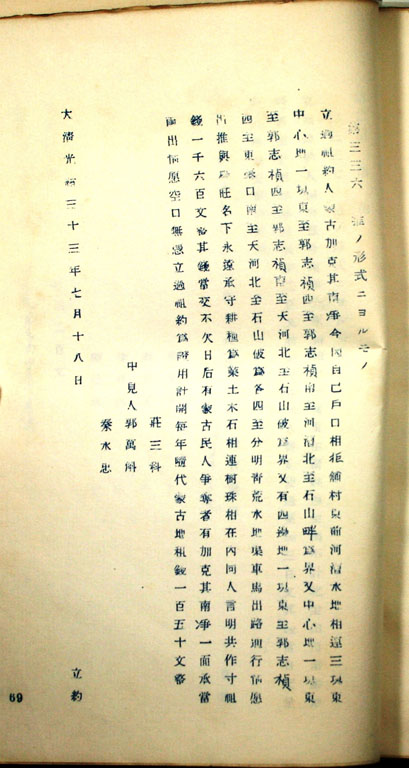 第三三六號ノ形式ニヨルモノ
立過租約人蒙古加克其南淨今因自己戶口相拒舖村東前河灣水地相連三塊東
中心地一塊東至郭志禎西至郭志禎南至河灣北至石山畔為界又中心地一塊東
至郭志禎西至郭志禎南至天河北至石山破為界又有四邊地一塊東至郭志禎
西至東溝口南至天河北至石山破為各四至分明靑荒水地渠車馬出路通行情愿
出推與旺名下永遠承守耕種為業土木石相連樹珠相在內同人言明共作寸租
錢一千六百文其錢當交不欠日后有蒙古民人爭奪者有加克其南淨一面承當
兩出情愿空口無憑立過租約為證用計開每年隨代蒙古地租錢一百五十文
莊三科
中見人郭萬斛
秦水忠
大淸光緖三十三年七月十八日
立約
69